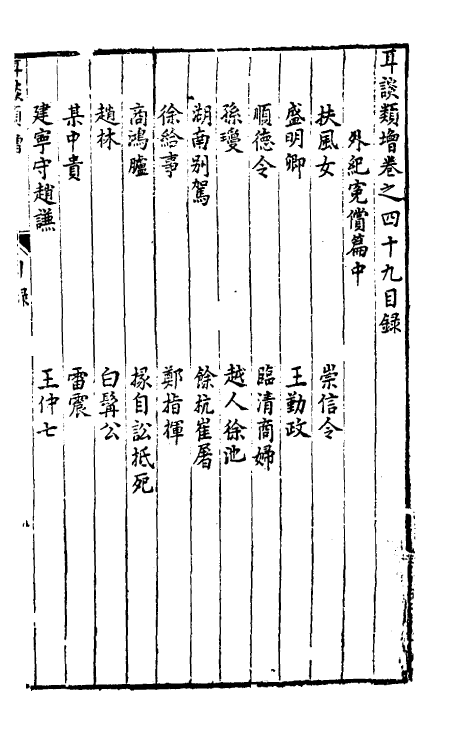 耳談類增卷之四十九目録
外紀寃償篇中
扶風女 崇信令
盛明卿 王勤政
順德令 臨清商婦
孫瓊 越人徐池
湖南别駕 餘杭崔屠
徐給事 鄭指揮
商鴻臚 掾自訟抵死
趙林 白髯公
某中貴 雷震
建寧守趙謙 王仲七
耳談類增 目録